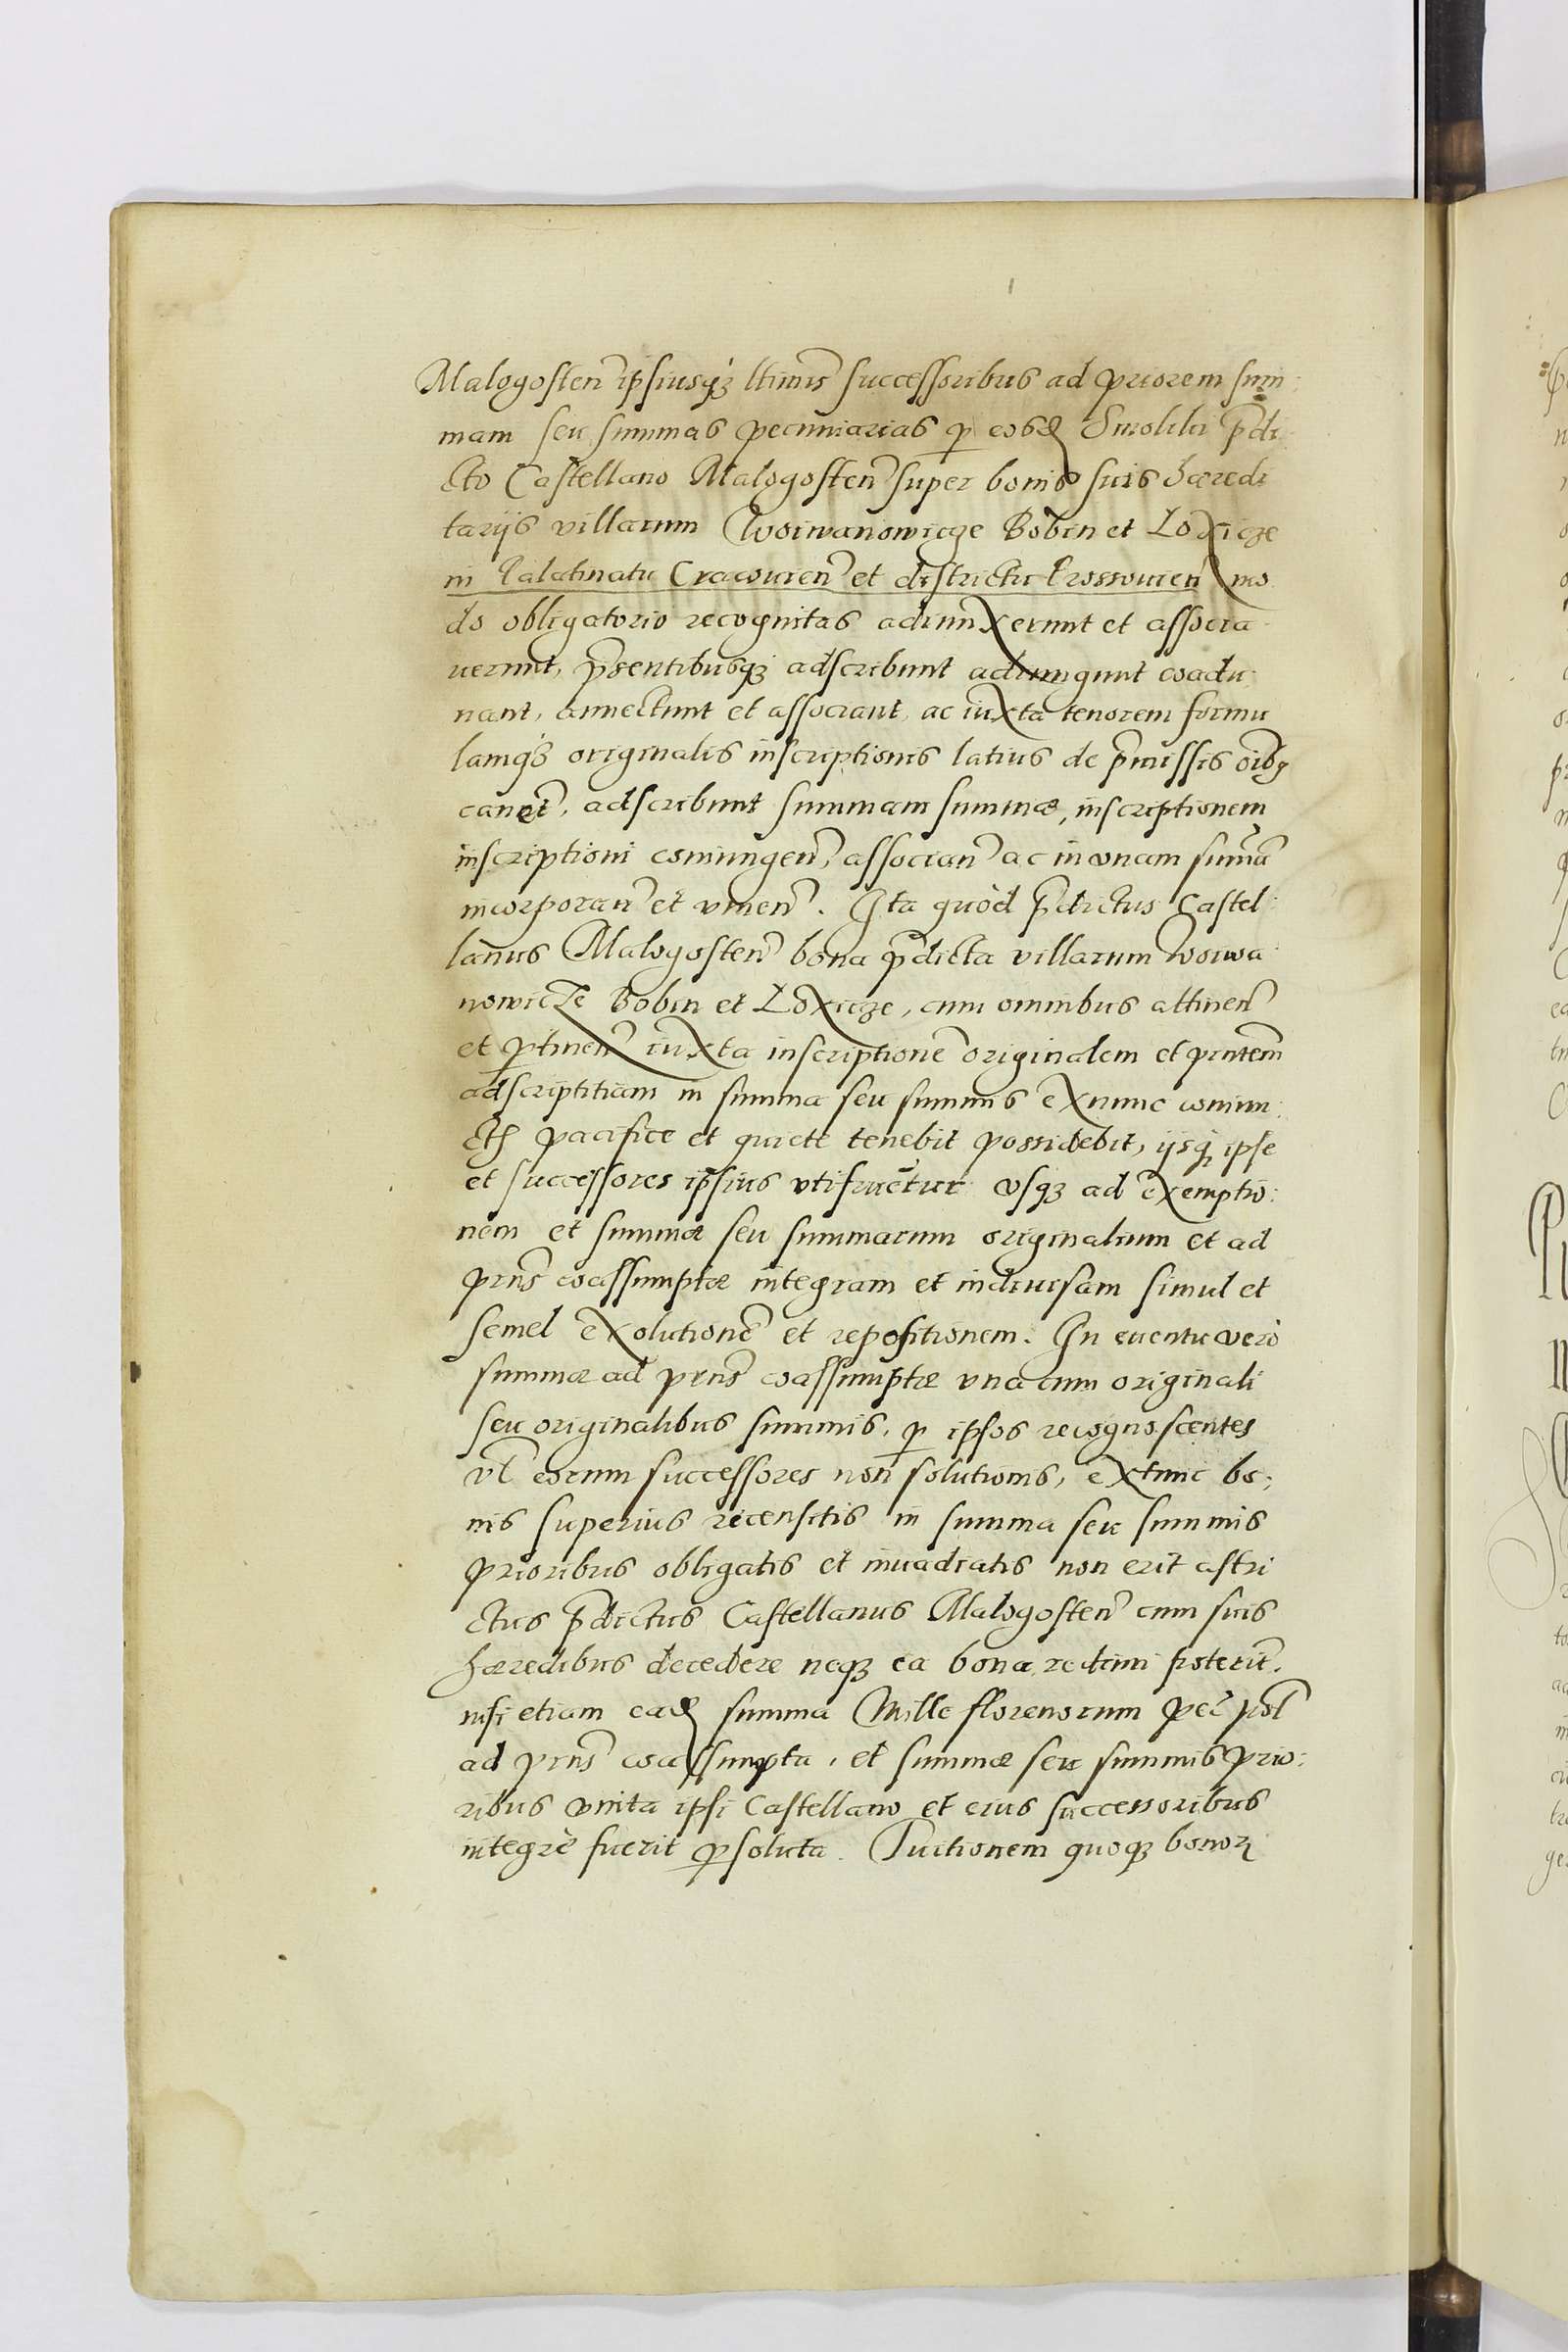 Malogosten ipsiusq3 ltimis successoribus ad priorem sum:
mam seu summas pecuniarias p eosd Smoliki pdi
cto Castellano Malogosten super bonis suis hæredi
tarijs villarum Woiwanowicze Bobin et Loxicze
in Palatinatu Cracouien et districtu Prossouien mo
do obligatorio recognitas adiunxerunt et associa
uerunt, psentibusq3 adscribunt adiungunt coadu:
nant, annectunt et associant, ac iuxta tenorem formu
lamq3 originalis inscriptionis latius de pmissis oibq
canen, adscribunt summam summæ, inscriptionem
inscriptioni coniungen, associan ac in vnam summa
incorporan et vnien. Ita quòd pdictus Castel:
lanus Malogosten bona pdicta villarum Woiwa:
nowicze Bobin et Loxicze, cum omnibus attinen
et ptinen iuxta inscriptione originalem et pntem
adscriptitiam in summa seu summis exnunc coniun:
ctis pacifice et quiete tenebit possidebit, ijsq3 ipse
et successores ipsius vtifruetur vsq3 ad exemptio:
nem et summæ seu summarum originalium et ad
prns coassumptæ integram et indiuisam simul et
semel exolutione et repositionem. In euentu verò
summæ ad prns coassumptæ vna cum originali
seu originalibus summis, p ipsos recognoscentes
vl eorum successores non solutionis, extunc bo:
nis superius recensitis in summa seu summis
prioribus obligatis et inuadiatis non erit astri
ctus pdictus Castellanus Malogosten cum suis
hæredibus decedere neq3 ea bona redimi poterit,
nisi etiam ead summa Mille florenorum pec pol
ad prns coassumpta, et summæ seu summis prio:
ribus vnita ipsi Castellano et eius successoribus
integrè fuerit psoluta. Tuitionem quoq3 bonor